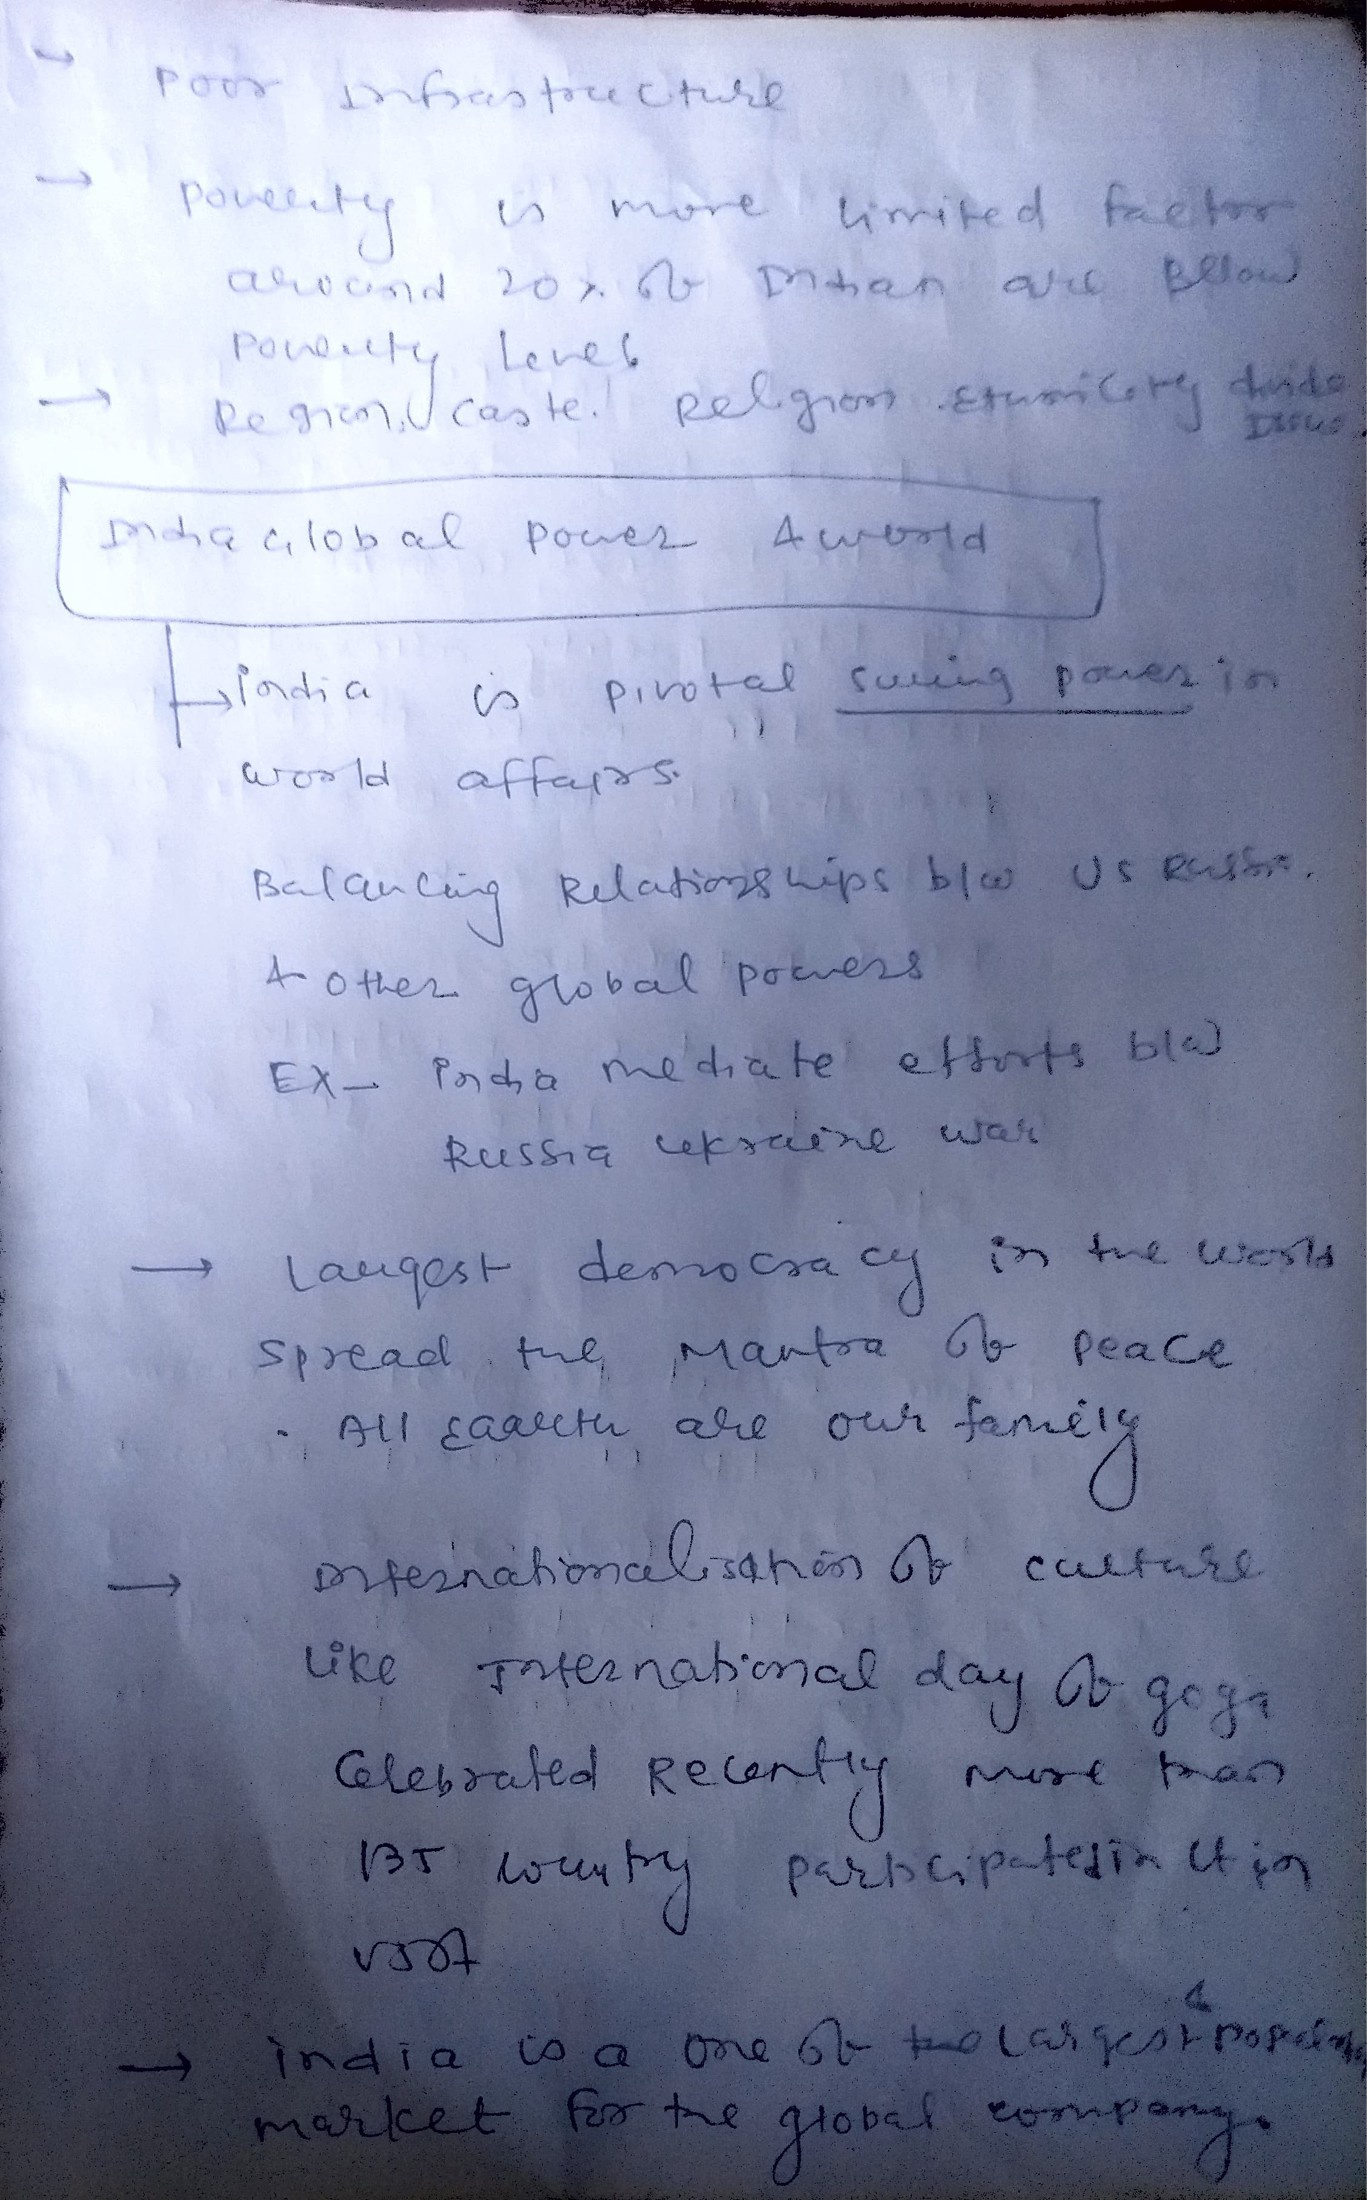 → Poor Infrastructure
→ Poverty is more limited factor
around 20% of Indian are Bellow
Poverty level
→ Region, Caste. Religion. Ethnicity divide
Issue.
India Global Power & world
→ india is pivotal swing power in
world affairs.
Balancing Relationships b/w US Russia.
& other global powers
EX- india mediate efforts b/w
Russia ukraine war
→ Largest democracy in the world
Spread the Mantra of Peace
. All Eaarth are our family
→ Internationalisation of culture
Like International day of yoga
Celebrated Recently more than
135 country participated in it in
→ india is a one of the Largest &
market for the global company.